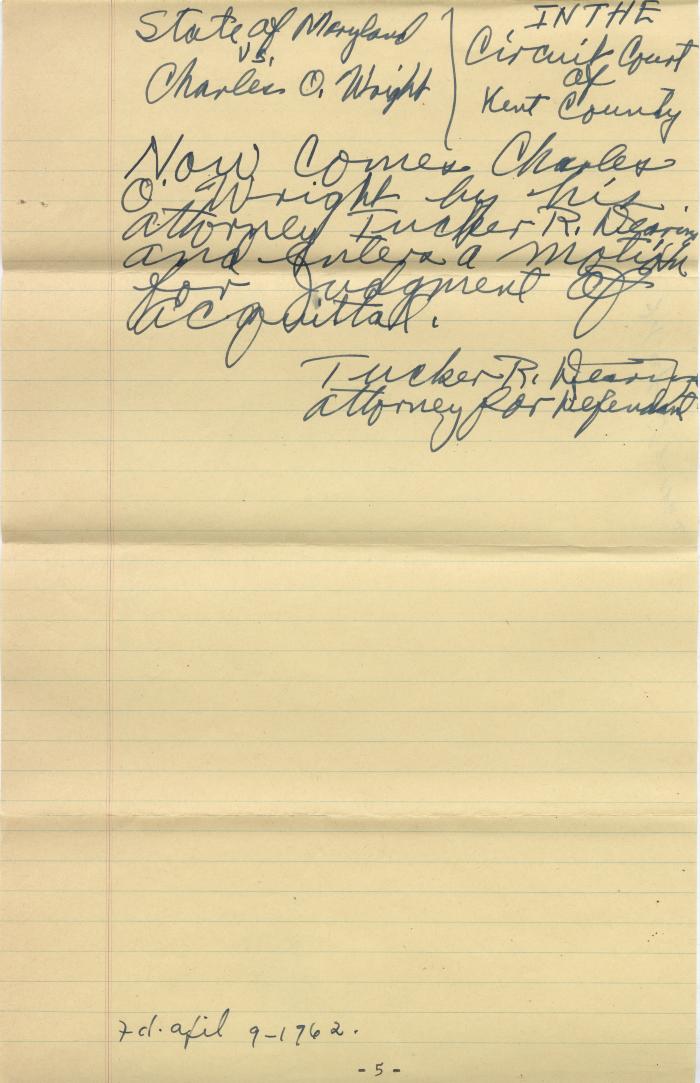 State of Maryland
vs.
Charles O. Wright
IN THE
Circuit Court
of
Kent County
Now Comes Charles
O. Wright by his
attorney Tucker R. Dearing
and enters a motion
for Judgment Of
acquittal.
Tucker R. Dearing
attorney for Defendant
Fd. April 9-1962.
- 5 -